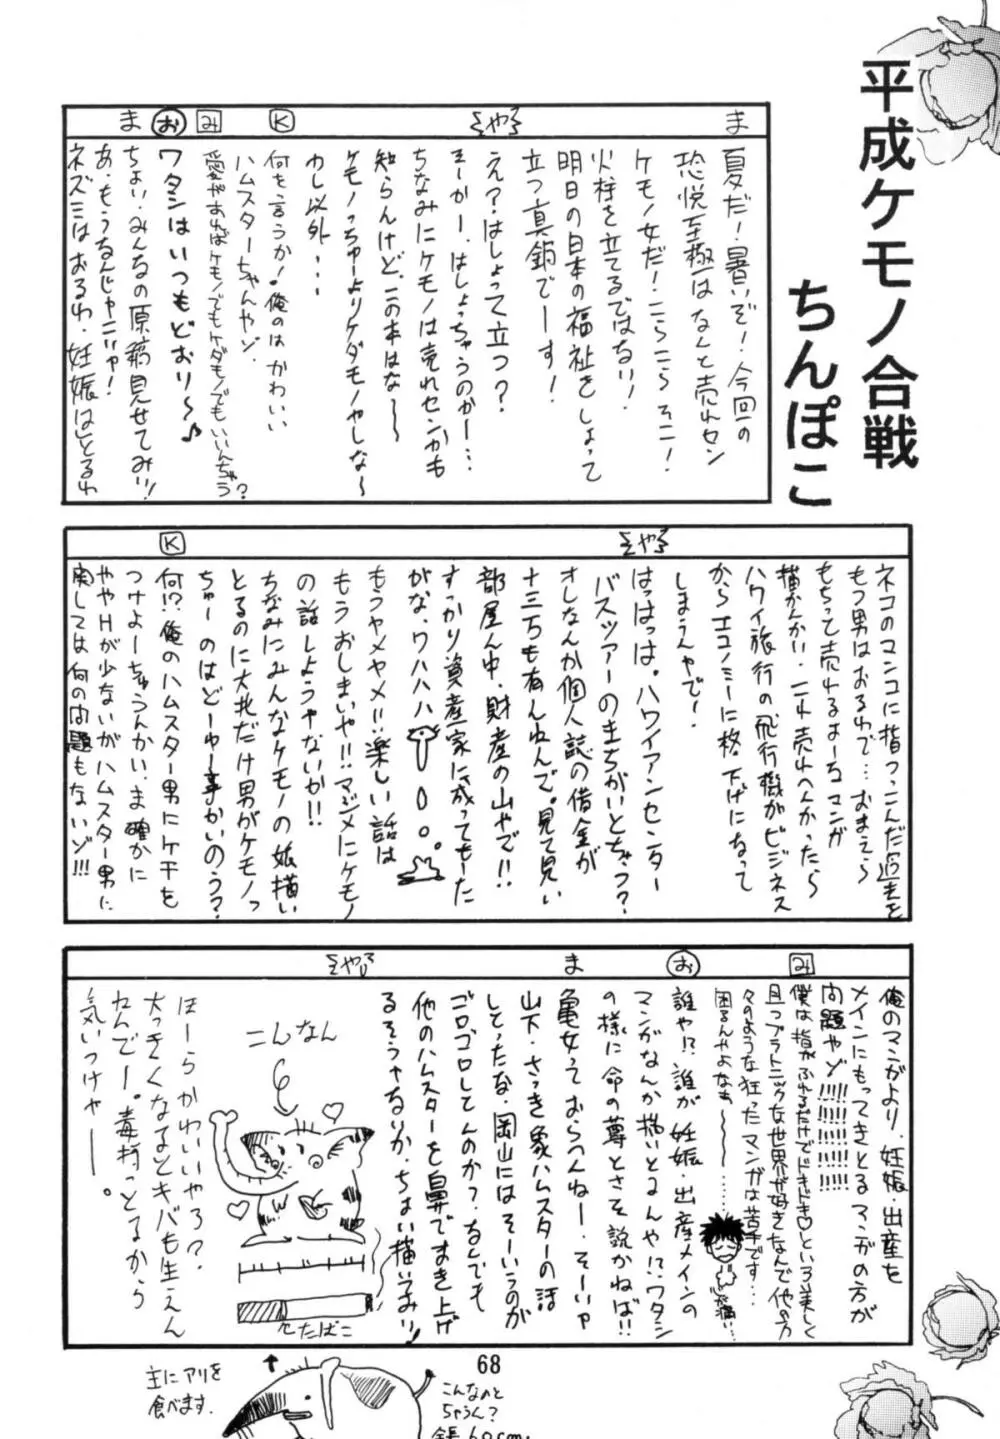 平成ケモノ合戦
ちんぽこ
ま
夏だ！暑いぞ！今回の
恐悦至極はなんと売れセン
ケモノ女だ！こらこらそこ！
火柱を立てるではない！
明日の日本の福祉をしょって
立つ真鍋でーす！
そやろ
え？はしょって立つ？
そーかー、はしょっちゃうのかー…
ちなみにケモノは売れセンかも
知らんけど、この本はな～
ケモノっちゅーよりケダモノやしな～
わし以外…
K
何を言うか！俺のはかわいい
ハムスターちゃんやゾ
み
愛があればケモノでもケダモノでもいいんちゃう？
お
ワタシはいつもどおり～♪
ま
ちょい、みんなの原稿見せてみい！
あ、もうなんじゃこいや！
ネズミはおるわ、妊娠はしとるわ
ネコのマンコに指つっこんだ過去を
もつ男はおるわで…おまえら
もちっと売れるよーなマンガ
描かんかい、これ売れへんかったら
ハワイ旅行の飛行機がビジネス
からエコノミーに格下げになって
しまうんやでー
そやろ
はっはっは。ハワイアンセンター
バスツアーのまちがいとちゃう？
オレなんか個人誌の借金が
十三万も有んねんで。見て見い
部屋ん中、財産の山やで！！
すっかり資産家に成ってもーた
がな、ワハハハ
もうヤメヤメ！！楽しい話は
もうおしまいや！！マジメにケモノ
の話しようやないか！！
ちなみにみんなケモノの娘描い
とるのに大北だけ男がケモノっ
ちゅーのはどーゆー事かいのう？
K
何！？俺のハムスター男にケチを
つけよーちゅうんかい、ま確かに
ややHが少ないがハムスター男に
関しては何の問題もないゾ！！！
俺のマンガより、妊娠・出産を
メインにもってきとるマンガの方が
問題やゾ！！！！！！！！！！
み
僕は指がふれるだけでドキドキ♡という美しく
且つプラトニックな世界が好きなんで他の方
々のような狂ったマンガは苦手です…
困るんやよなぁ～～～……
お
誰や！？誰が妊娠・出産メインの
マンガなんか描いとるんや！？ワタシ
の様に命の尊とさを説かねば！！
ま
亀女っておらんねー、そーいや
山下、さっき象ハムスターの話
しとったな、岡山にはそーいうのが
ゴロゴロしてんのか？なんでも
他のハムスターを鼻でまき上げ
るそうやないか、ちょい描いてみい！
そやろ
こんなん
たばこ
ほーらかわいいやろ？
大っきくなるとキバも生えん
ねんでー。毒持っとるから
気いつけやー。
68
主にアリを
食べます。
こんなのと
ちゃうん？
全長60cm.